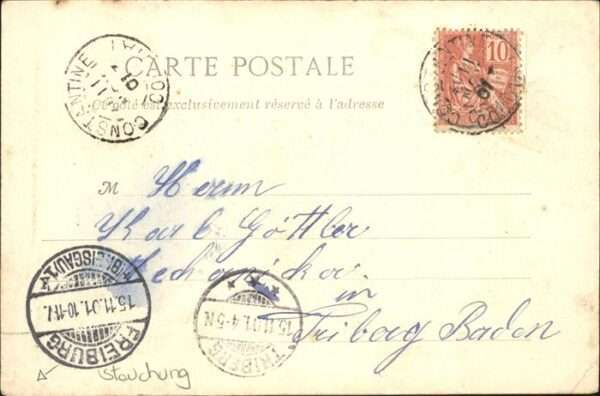 CARTE POSTALE
Ce côté est exclusivement réservé à l'adresse
10
CONSTANTINE
M Herrn
Karl Göttler
Mechaniker
in
Triberg Baden
FREIBURG (BREISGAU) 1
15.11.01.10-11V.
TRIBERG
15.11.01.4-5N.
Stauchung